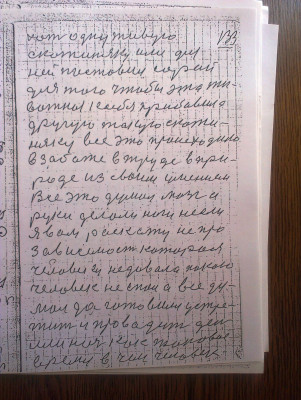 хот одну живую 133
скотиняку или ду
ней пустовил сарай
для того чтобы эта жи-
вотная к себя прибавила
другую такую скоти-
няку все это происходило
в заботе в труде в при-
роде из своим умением
Все это думал мозг и
руки делали ноги несли
Я вам, раскажу не про
зависемост которая
человеку недовала покою
человек не спал а все ду-
мал да готовился устре-
тит и проводит ден
или ноч как таковое
время в чем человек